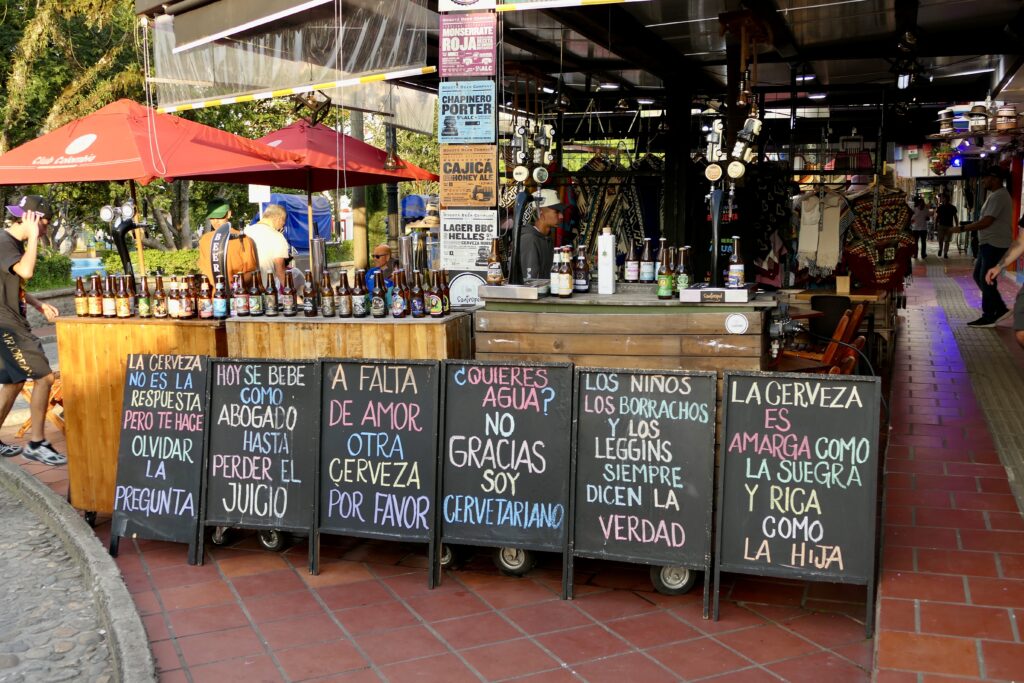 MONSERRATE
ROJA
CHAPINERO
PORTER
CAJICÁ
HONEY ALE
LAGER BBC
HELLES
Club Colombia
BEER
LA CERVEZA
NO ES LA
RESPUESTA
PERO TE HACE
OLVIDAR
LA
PREGUNTA
HOY SE BEBE
COMO
ABOGADO
HASTA
PERDER EL
JUICIO
A FALTA
DE AMOR
OTRA
CERVEZA
POR FAVOR
¿QUIERES
AGUA?
NO
GRACIAS
SOY
CERVETARIANO
LOS NIÑOS
LOS BORRACHOS
Y LOS
LEGGINS
SIEMPRE
DICEN LA
VERDAD
LA CERVEZA
ES
AMARGA COMO
LA SUEGRA
Y RICA
COMO
LA HIJA